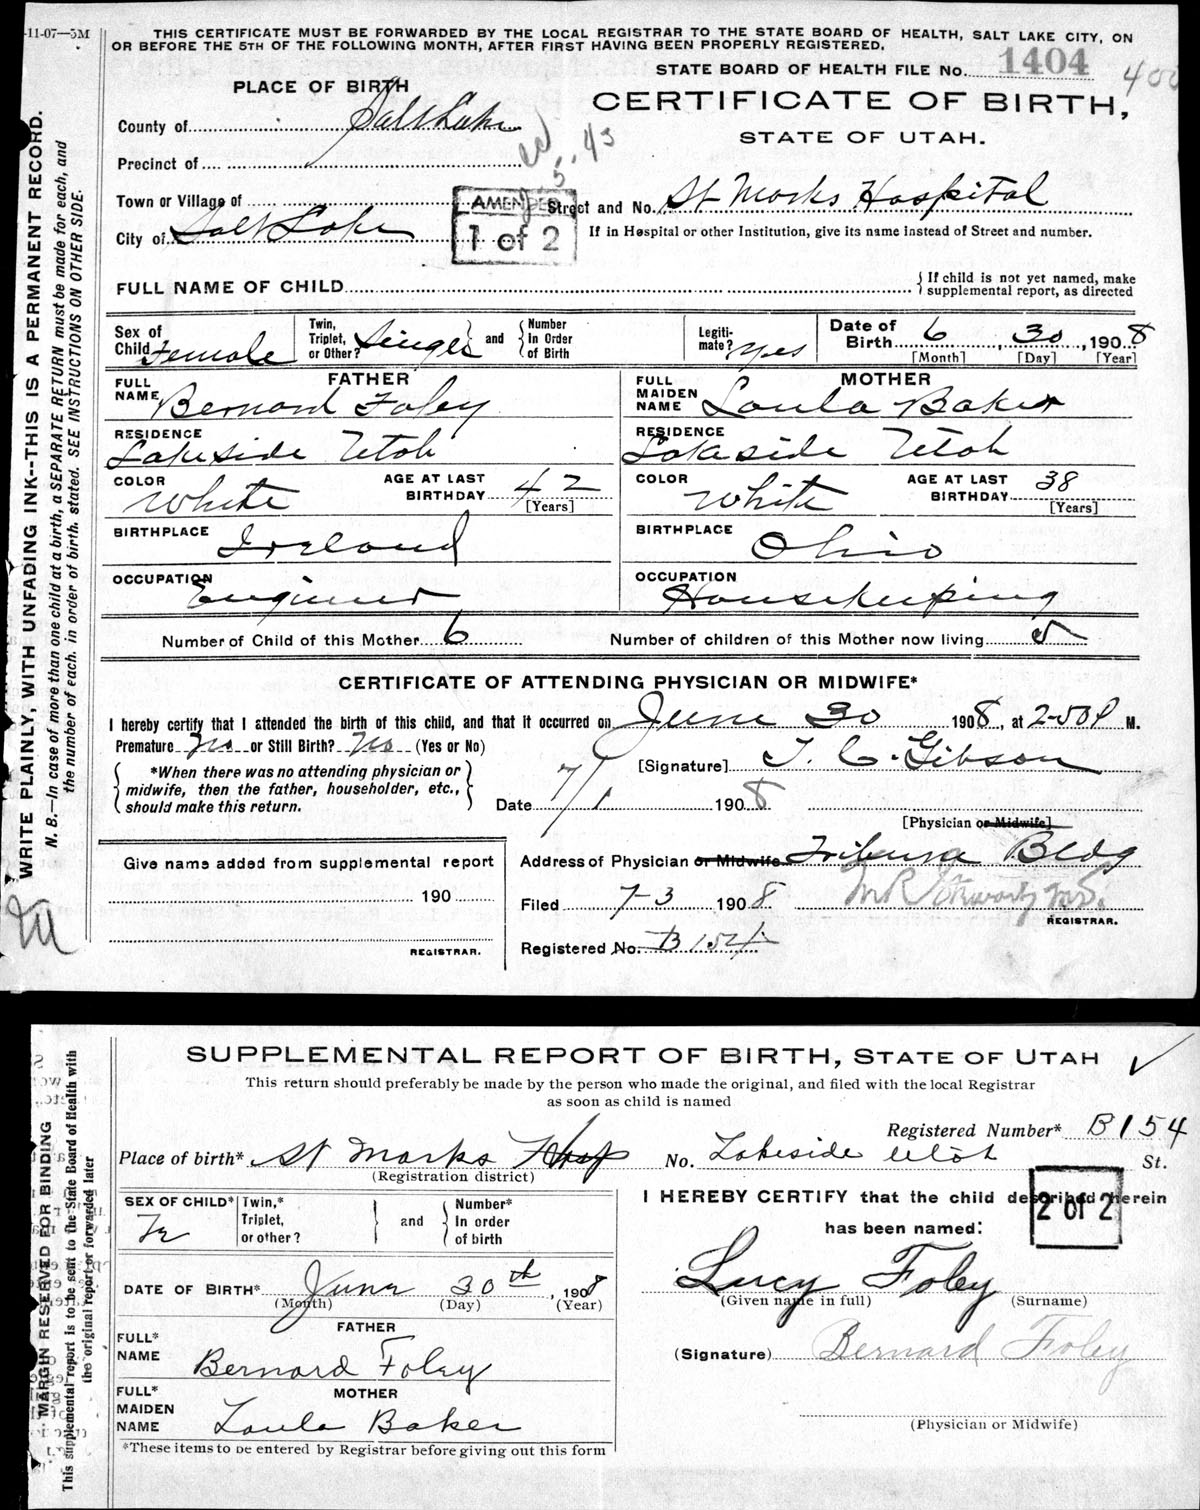 -11-07—5M
THIS CERTIFICATE MUST BE FORWARDED BY THE LOCAL REGISTRAR TO THE STATE BOARD OF HEALTH, SALT LAKE CITY, ON
OR BEFORE THE 5TH OF THE FOLLOWING MONTH, AFTER FIRST HAVING BEEN PROPERLY REGISTERED.
STATE BOARD OF HEALTH FILE No. 1404
400
PLACE OF BIRTH
CERTIFICATE OF BIRTH,
STATE OF UTAH.
County of Salt Lake
Precinct of
43
Town or Village of
AMENDED
1 of 2
Street and No. St Marks Hospital
City of Salt Lake
If in Hospital or other Institution, give its name instead of Street and number.
FULL NAME OF CHILD
{If child is not yet named, make
supplemental report, as directed
Sex of Child Female
Twin, Triplet, or Other? Single } and { Number In Order of Birth
Legiti-mate? Yes
Date of Birth 6, 30, 1908
[Month] [Day] [Year]
FATHER
FULL NAME Bernard Foley
RESIDENCE Lakeside Utah
COLOR White AGE AT LAST BIRTHDAY 42
[Years]
BIRTHPLACE Ireland
OCCUPATION Engineer
MOTHER
FULL MAIDEN NAME Loula Baker
RESIDENCE Lakeside Utah
COLOR White AGE AT LAST BIRTHDAY 38
[Years]
BIRTHPLACE Ohio
OCCUPATION Housekeeping
Number of Child of this Mother 6 Number of children of this Mother now living 5
CERTIFICATE OF ATTENDING PHYSICIAN OR MIDWIFE*
I hereby certify that I attended the birth of this child, and that it occurred on June 30 1908, at 2-50 P M.
Premature No or Still Birth? No (Yes or No)
[Signature] T. C. Gibson
{ *When there was no attending physician or
midwife, then the father, householder, etc.,
should make this return. }
Date 7/1 1908
[Physician or Midwife]
Address of Physician or Midwife Tribune Bldg
Give name added from supplemental report
190
REGISTRAR.
Filed 7-3 1908
REGISTRAR.
Registered No. B 154
WRITE PLAINLY, WITH UNFADING INK--THIS IS A PERMANENT RECORD.
N. B.—In case of more than one child at a birth, a SEPARATE RETURN must be made for each, and
the number of each, in order of birth, stated. SEE INSTRUCTIONS ON OTHER SIDE.
SUPPLEMENTAL REPORT OF BIRTH, STATE OF UTAH
This return should preferably be made by the person who made the original, and filed with the local Registrar
as soon as child is named
Registered Number* B154
Place of birth* St Marks Hosp No. Lakeside Utah St.
(Registration district)
SEX OF CHILD* Fe
Twin,* Triplet, or other? } and { Number* In order of birth
I HEREBY CERTIFY that the child described herein
has been named:
2 of 2
Lucy Foley
(Given name in full) (Surname)
DATE OF BIRTH* June 30th, 1908
(Month) (Day) (Year)
FATHER
FULL* NAME Bernard Foley
(Signature) Bernard Foley
MOTHER
FULL* MAIDEN NAME Loula Baker
(Physician or Midwife)
*These items to be entered by Registrar before giving out this form
MARGIN RESERVED FOR BINDING
This supplemental report is to be sent to the State Board of Health with
the original report or forwarded later